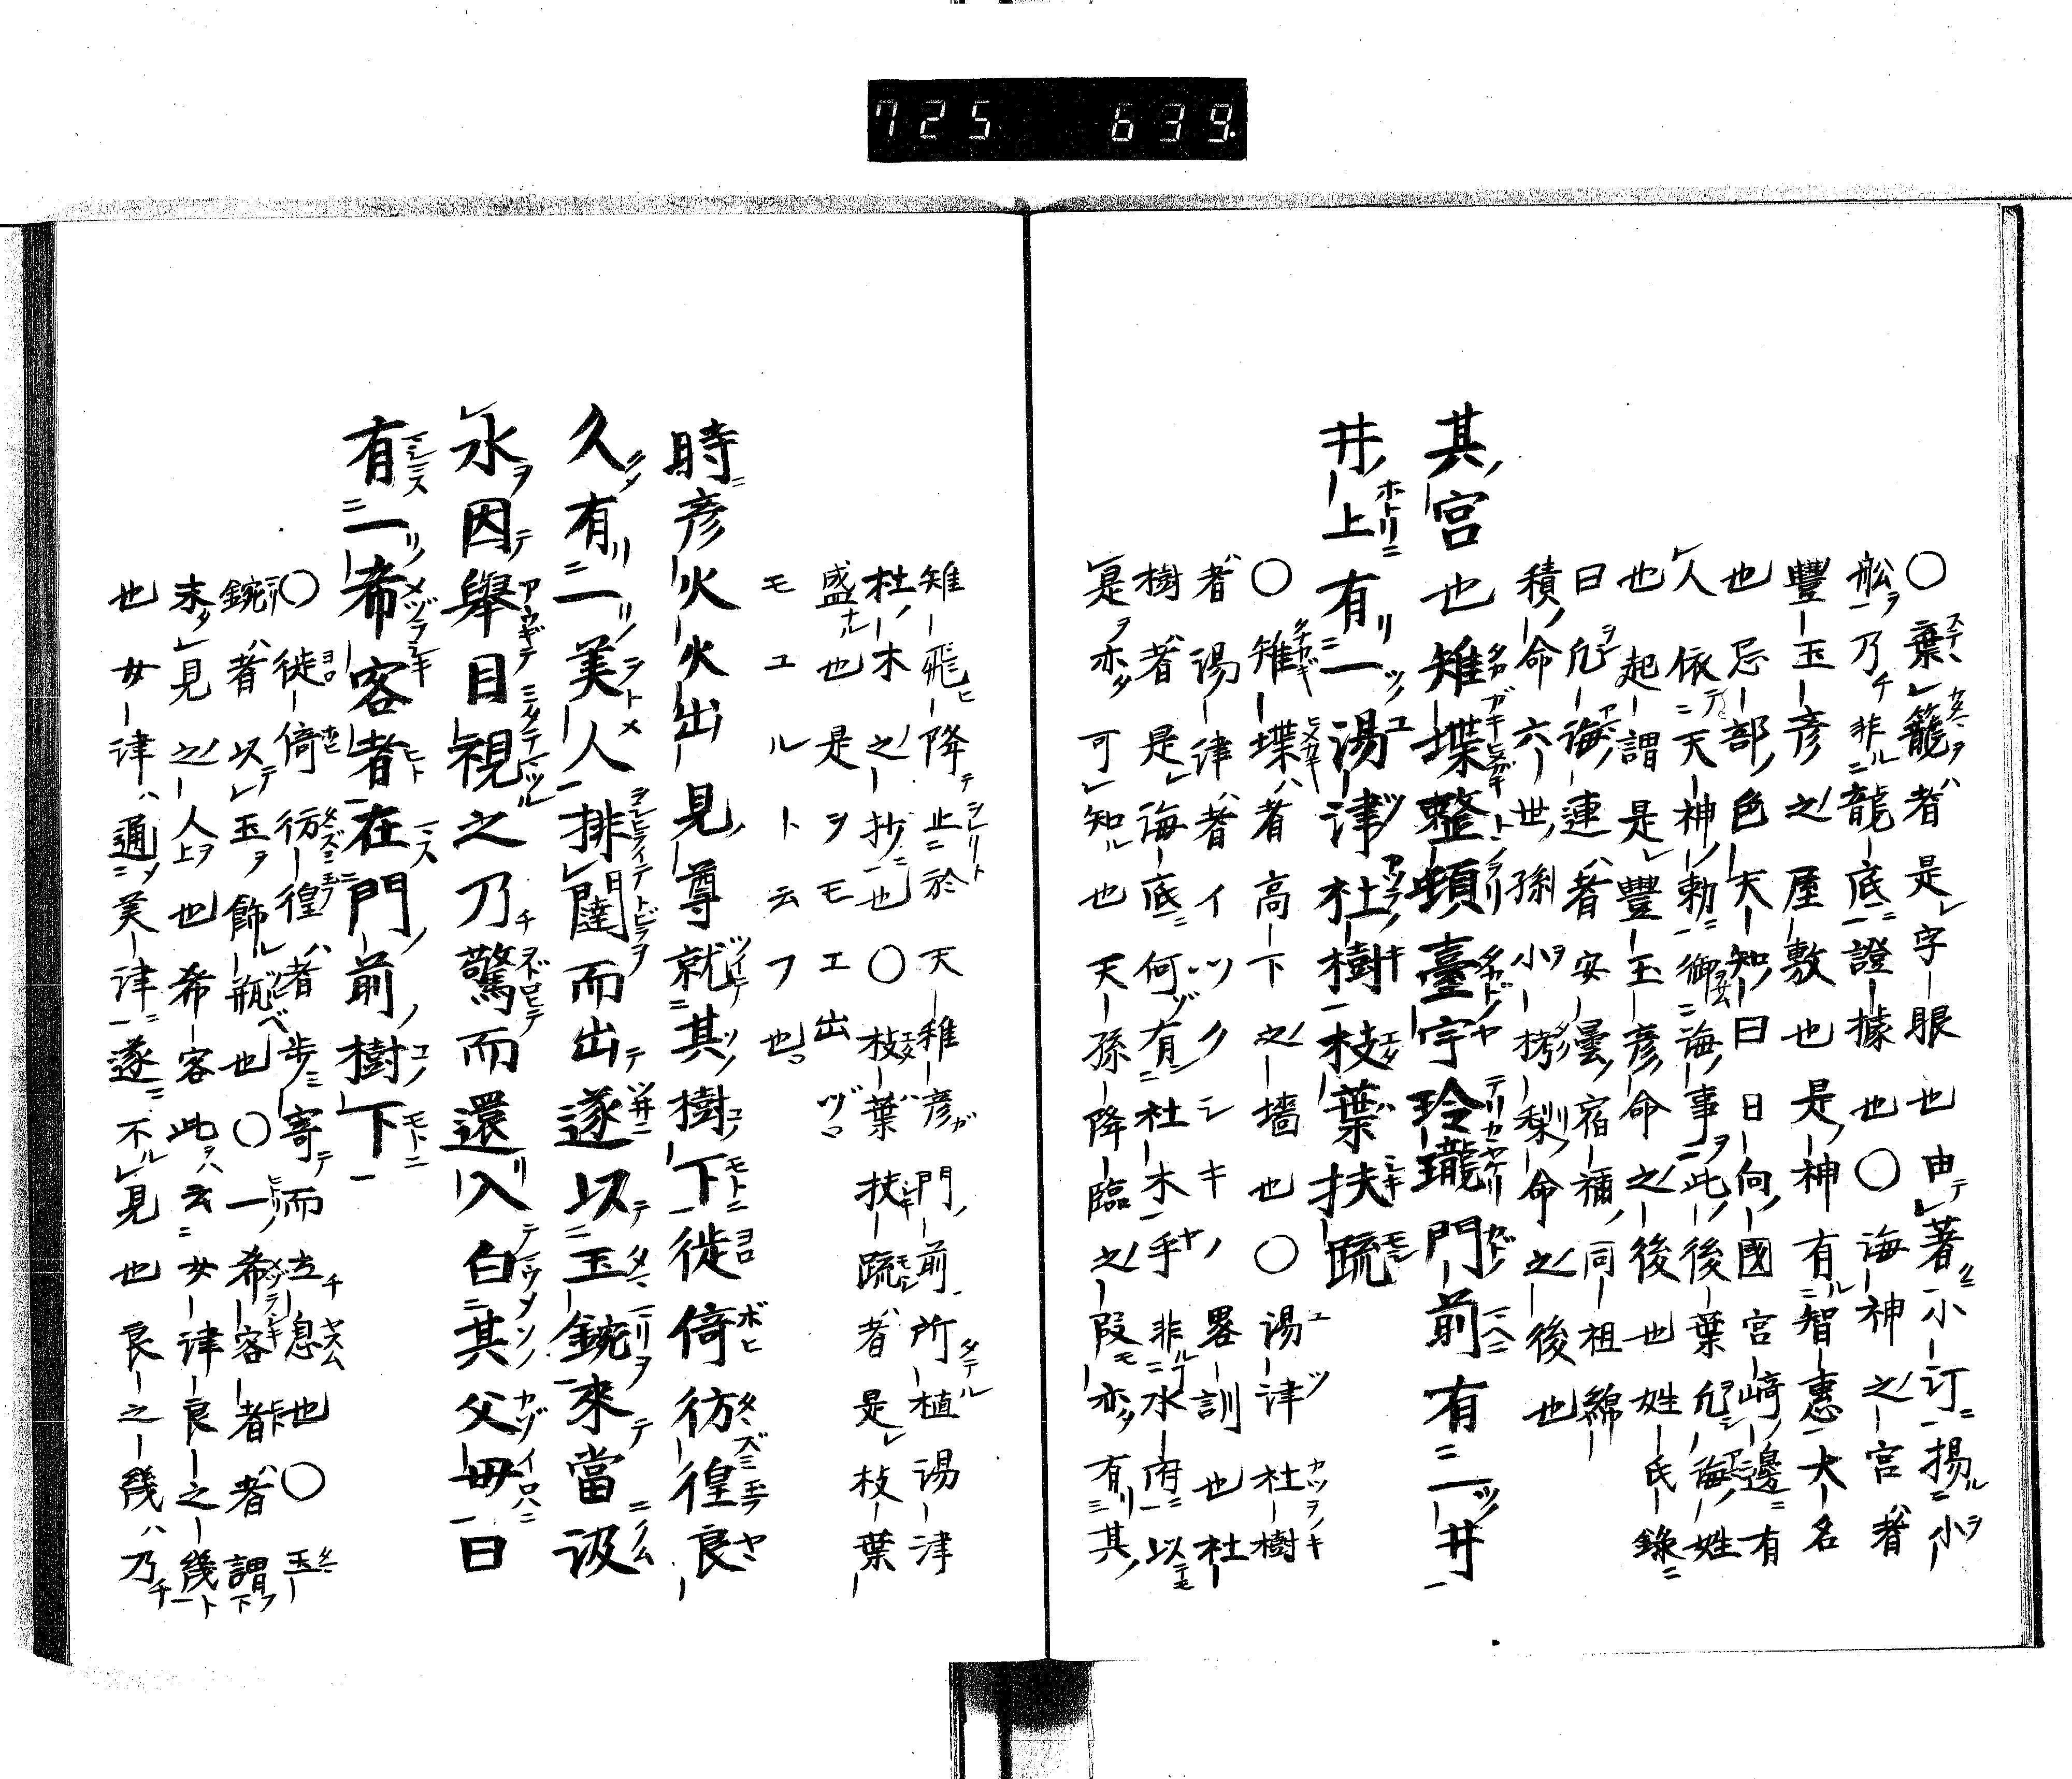 725 639.
○棄籠者是字眼也由著小汀揚小
舩乃非龍底證據也○海神之宮者
豐玉彦之屋敷也是神有智惠大名
也忌部色夫知曰日向國宮﨑邊有
人依天神勅御海事此後葉凢海姓
也起謂是豐玉彦命之後也姓氏錄
曰凢海連者安曇宿禰同祖綿
積命六世孫小栲梨命之後也
其宮也雉堞整頓臺宇玲瓏門前有一井
井上有一湯津杜樹枝葉扶疏
○雉堞者高下之墻也○湯津杜樹
者湯津者イツクシキノ畧訓也杜
樹者是海底何有杜木乎非水府以
是亦可知也天孫降臨之段亦有其
雉飛降止於天稚彦門前所植湯津
杜木之抄也○枝葉扶疏者是枝葉
盛也是ヲモエ出ヅ
モユルト云フ也
時彦火火出見尊就其樹下徙倚彷徨良
久有一美人排闥而出遂以玉鋺來當汲
水因舉目視之乃驚而還入白其父母曰
有一希客者在門前樹下
○徙倚彷徨者步寄而立息也○玉
鋺者以玉飾瓶也○一希客者者謂
未見之人上也希客此云女津良之幾
也女津通美津遂不見也良之幾乃